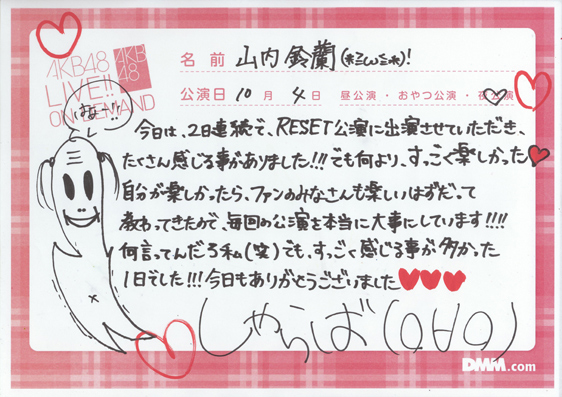 AKB48
LIVE!!
ON DEMAND
AKB
48
名前 山内鈴蘭(*ミωミ*)!
公演日 10月4日 昼公演・おやつ公演・夜公演
はなー!!
今日は、2日連続で、RESET公演に出演させていただき、
たくさん感じる事がありました!!!でも何より、すっごく楽しかった♥
自分が楽しかったら、ファンのみなさんも楽しいはずだって
教わってきたので、毎回の公演を本当に大事にしています!!!!
何言ってんだろ私(笑)でも、すっごく感じる事が多かった
1日でした!!!今日もありがとうございました♥♥♥
しゃらば(o∀o)
DMM.com